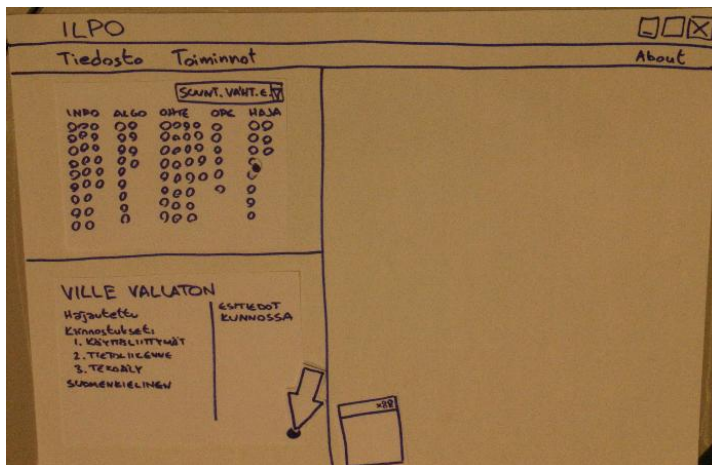 ILPO
Tiedosto Toiminnot About
SUUNT. VAIHT. E.
INFO ALGO OHTE OPE HAJA
VILLE VALLATON
Hajautettu
Kiinnostukset:
1. KÄYTTÖLIITTYMÄT
2. TIETOLIIKENNE
3. TEKOÄLY
SUOMENKIELINEN
ESITIEDOT
KUNNOSSA